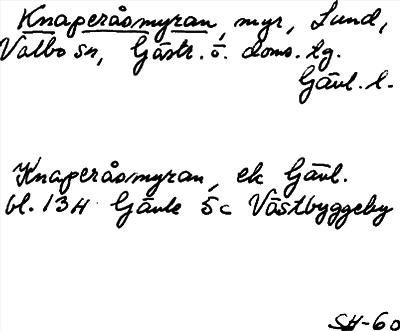 Knaperåsmyran, myr, Lund,
Valbo sn, Gästr. ö. doms. tg.
Gävl. l.
Knaperåsmyran, ek Gävl.
bl. 13H Gävle 5c Västbyggeby
SH-60